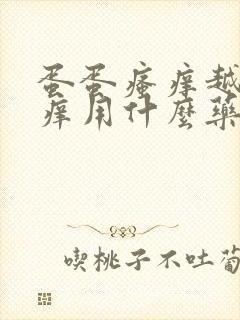 蛋蛋瘙痒越
痒用什麼藥
喫桃子不吐葡